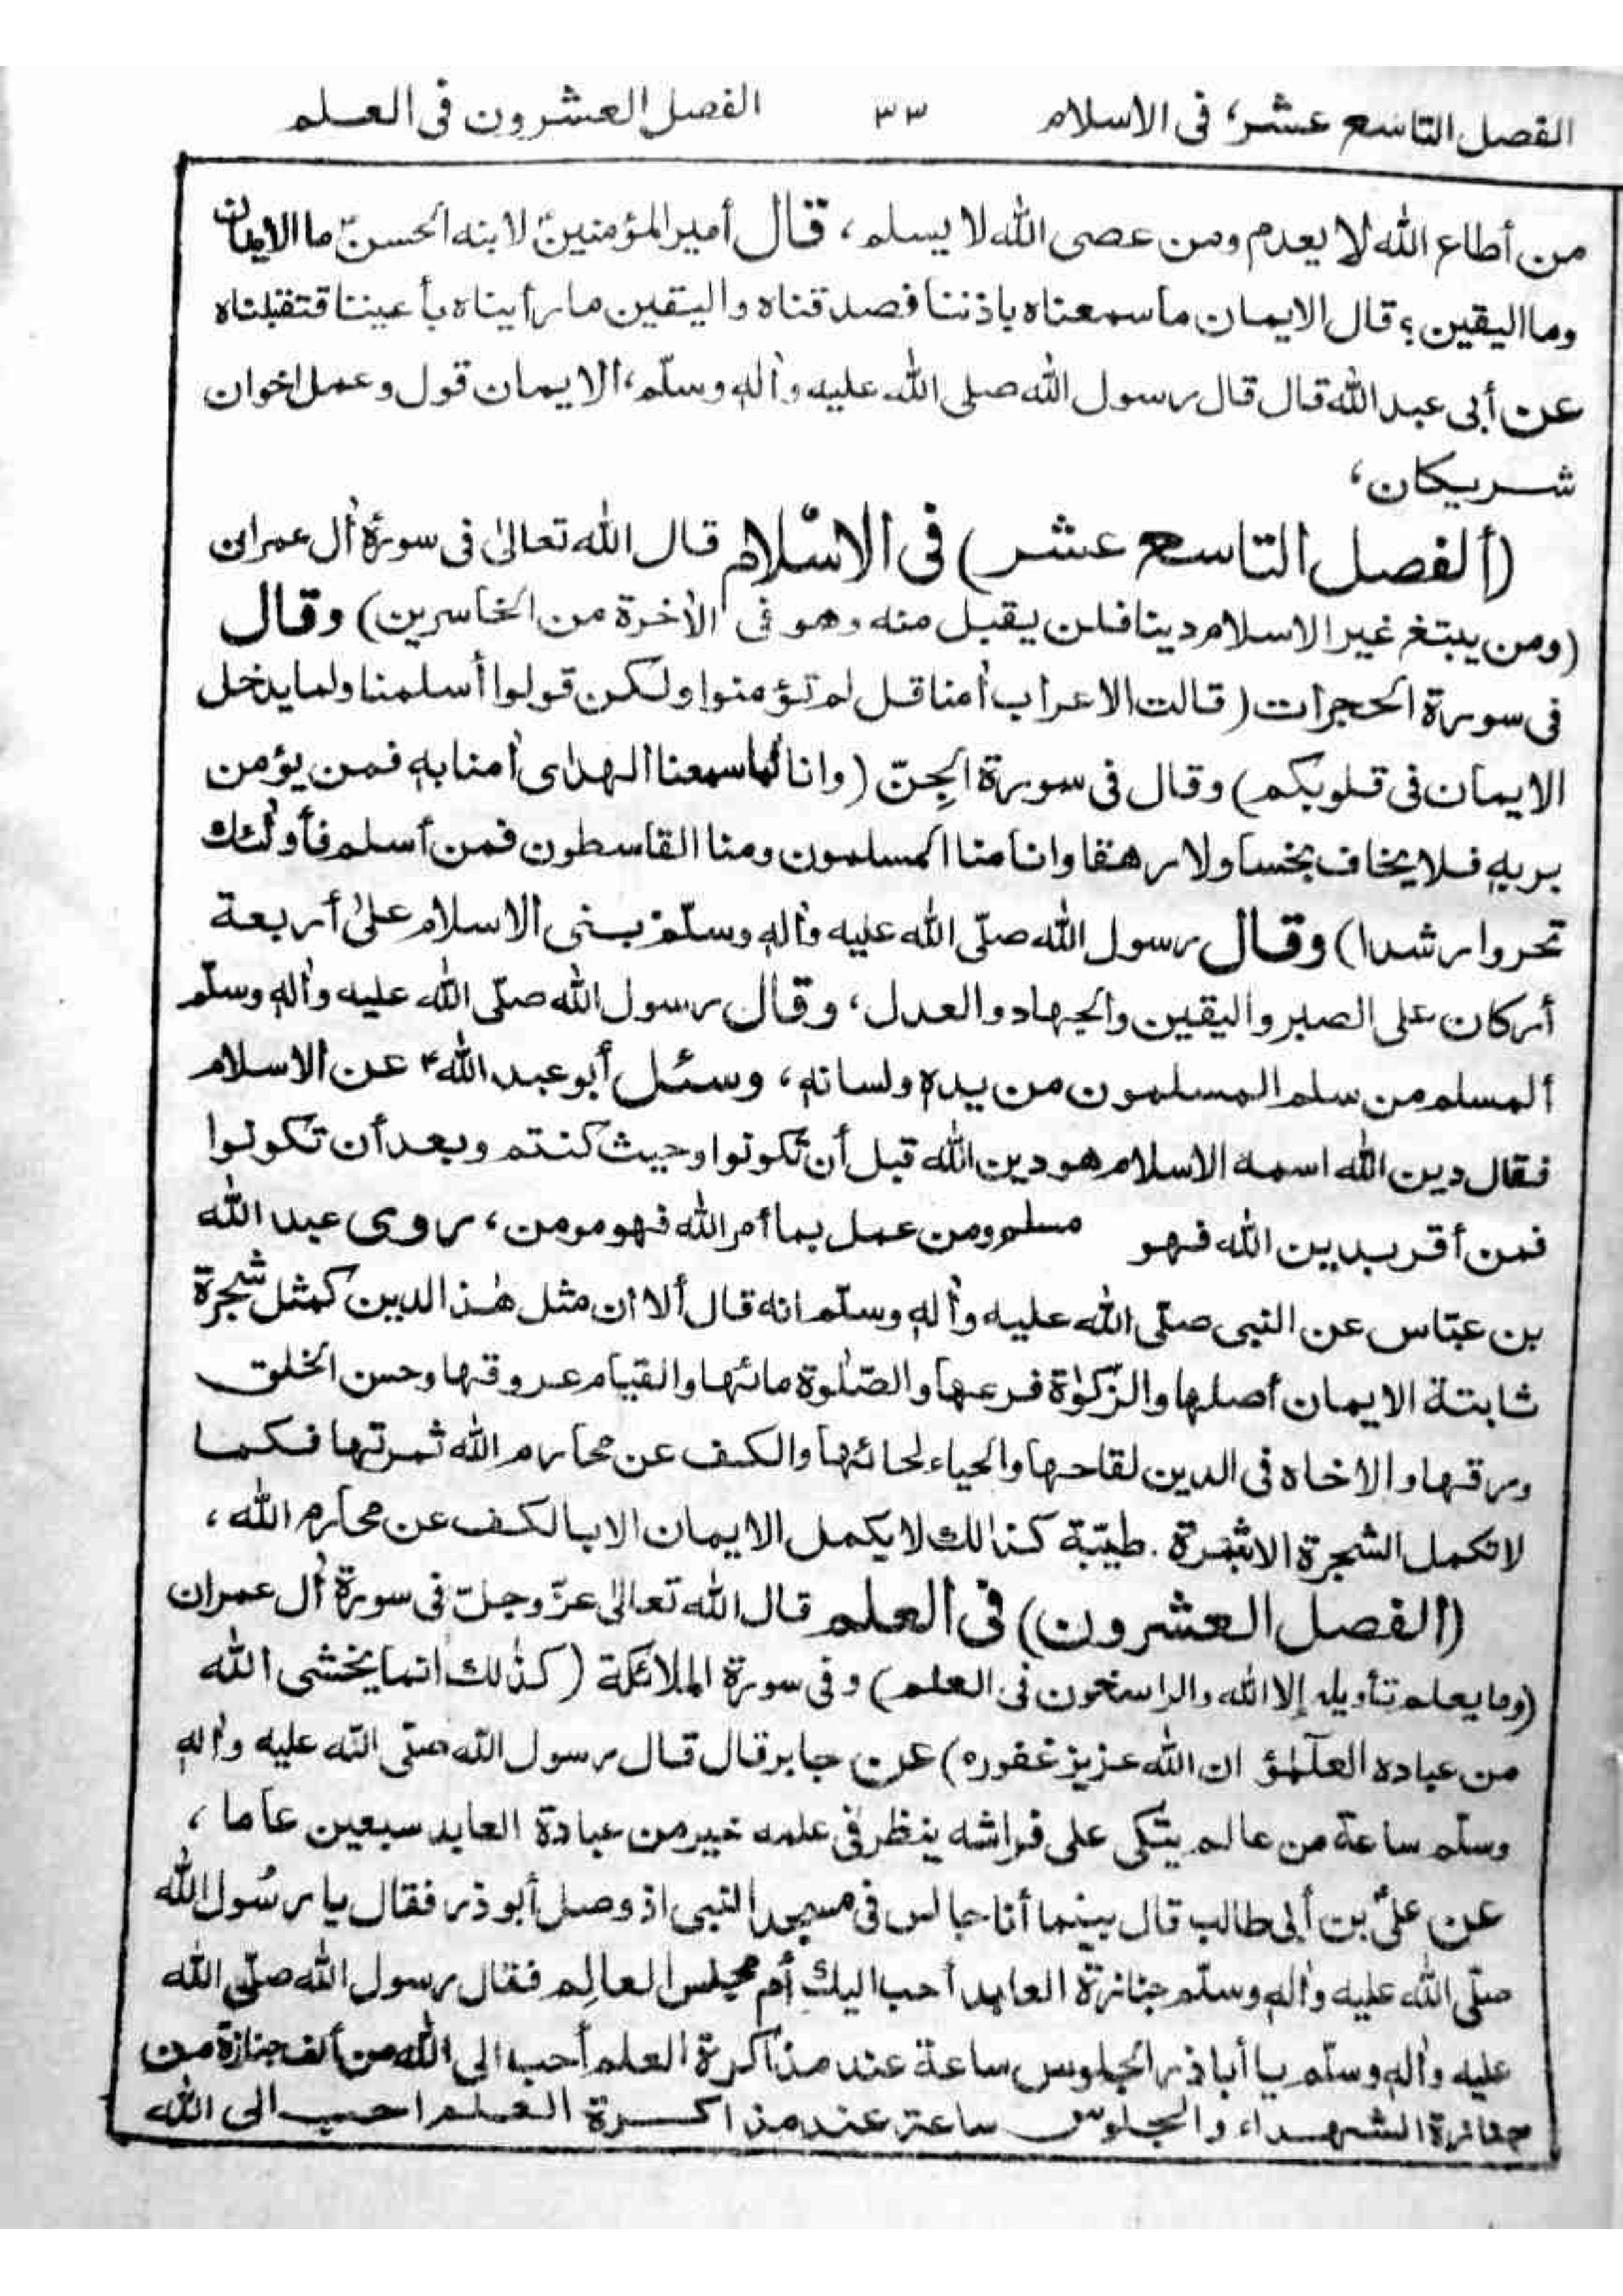 الفصل التاسع عشر، فى الاسلام ٣٣ الفصل العشرون فى العلم
من أطاع الله لا يعدم ومن عصى الله لا يسلم، قال أمير المؤمنينؑ لابنه الحسنؑ ما الايمان
وما اليقين؟ قال الايمان ما سمعناه باذننا فصدقناه واليقين ما رأيناه بأعيننا فتقبلناه
عن أبى عبد الله قال قال رسول الله صلى الله عليه واٰله وسلّم، الايمان قول وعمل اخوان
شريكان،
(ألفصل التاسع عشر) فى الاسْلام قال الله تعالىٰ فى سورة اٰل عمران
(ومن يبتغ غير الاسلام دينا فلن يقبل منه وهو فى الاٰخرة من الخاسرين) وقال
فى سورة الحجرات (قالت الاعراب اٰمنا قل لم تؤمنوا ولكن قولوا أسلمنا ولما يدخل
الايمان فى قلوبكم) وقال فى سورة الجِنّ (وانا لما سمعنا الهدٰى اٰمنا بهٖ فمن يؤمن
بربهٖ فلا يخاف بخسا ولا رهقا وانا منا المسلمون ومنا القاسطون فمن أسلم فأولٰئك
تحروا رشدا) وقال رسول الله صلّى الله عليه واٰلهٖ وسلّم بنى الاسلام علىٰ أربعة
أركان على الصبر واليقين والجهاد والعدل، وقال رسول الله صلّى الله عليه واٰلهٖ وسلّم
ألمسلم من سلم المسلمون من يدهٖ ولسانهٖ، وسئل أبو عبد اللهؑ عن الاسلام
فقال دين الله اسمه الاسلام هو دين الله قبل أن تكونوا وحيث كنتم وبعد أن تكونوا
فمن أقر بدين الله فهو مسلم ومن عمل بما أمر الله فهو مومن، روى عبد الله
بن عبّاس عن النبى صلّى الله عليه واٰلهٖ وسلّم انه قال ألا ان مثل هٰذ الدين كمثل شجرة
ثابتة الايمان أصلها والزّكوٰة فرعها والصّلٰوة مائها والقيام عروقها وحسن الخلق
ورقها والاخاه فى الدين لقاحها والحياء لحائها والكف عن محارم الله ثمرتها فكما
لا تكمل الشجرة الا بثمرة طيّبة كذالك لا يكمل الايمان الا بالكف عن محارم الله،
(الفصل العشرون) فى العلم قال الله تعالىٰ عزّ وجلّ فى سورة اٰل عمران
(وما يعلم تأويله إلا الله والراسخون فى العلم) وفى سورة الملائكة (كذٰلك انما يخشى الله
من عباده العلمٰؤ ان الله عزيز غفوره) عن جابر قال قال رسول الله صلّى الله عليه واٰلهٖ
وسلّم ساعة من عالم يتّكى على فراشه ينظر فى علمه خير من عبادة العابد سبعين عاما،
عن علىؑ بن أبى طالب قال بينما أنا جالس فى مسجد النبى اذ وصل أبو ذر فقال يا رسُول الله
صلّى الله عليه واٰلهٖ وسلّم جنازة العابد أحب اليك أم مجلس العالِم فقال رسول الله صلّى الله
عليه واٰلهٖ وسلّم يا أبا ذر الجلوس ساعة عند مذاكرة العلم أحب الى الله من ألف جنازة من
جنازة الشهداء والجلوس ساعة عند مذاكرة العلم احب الى الله